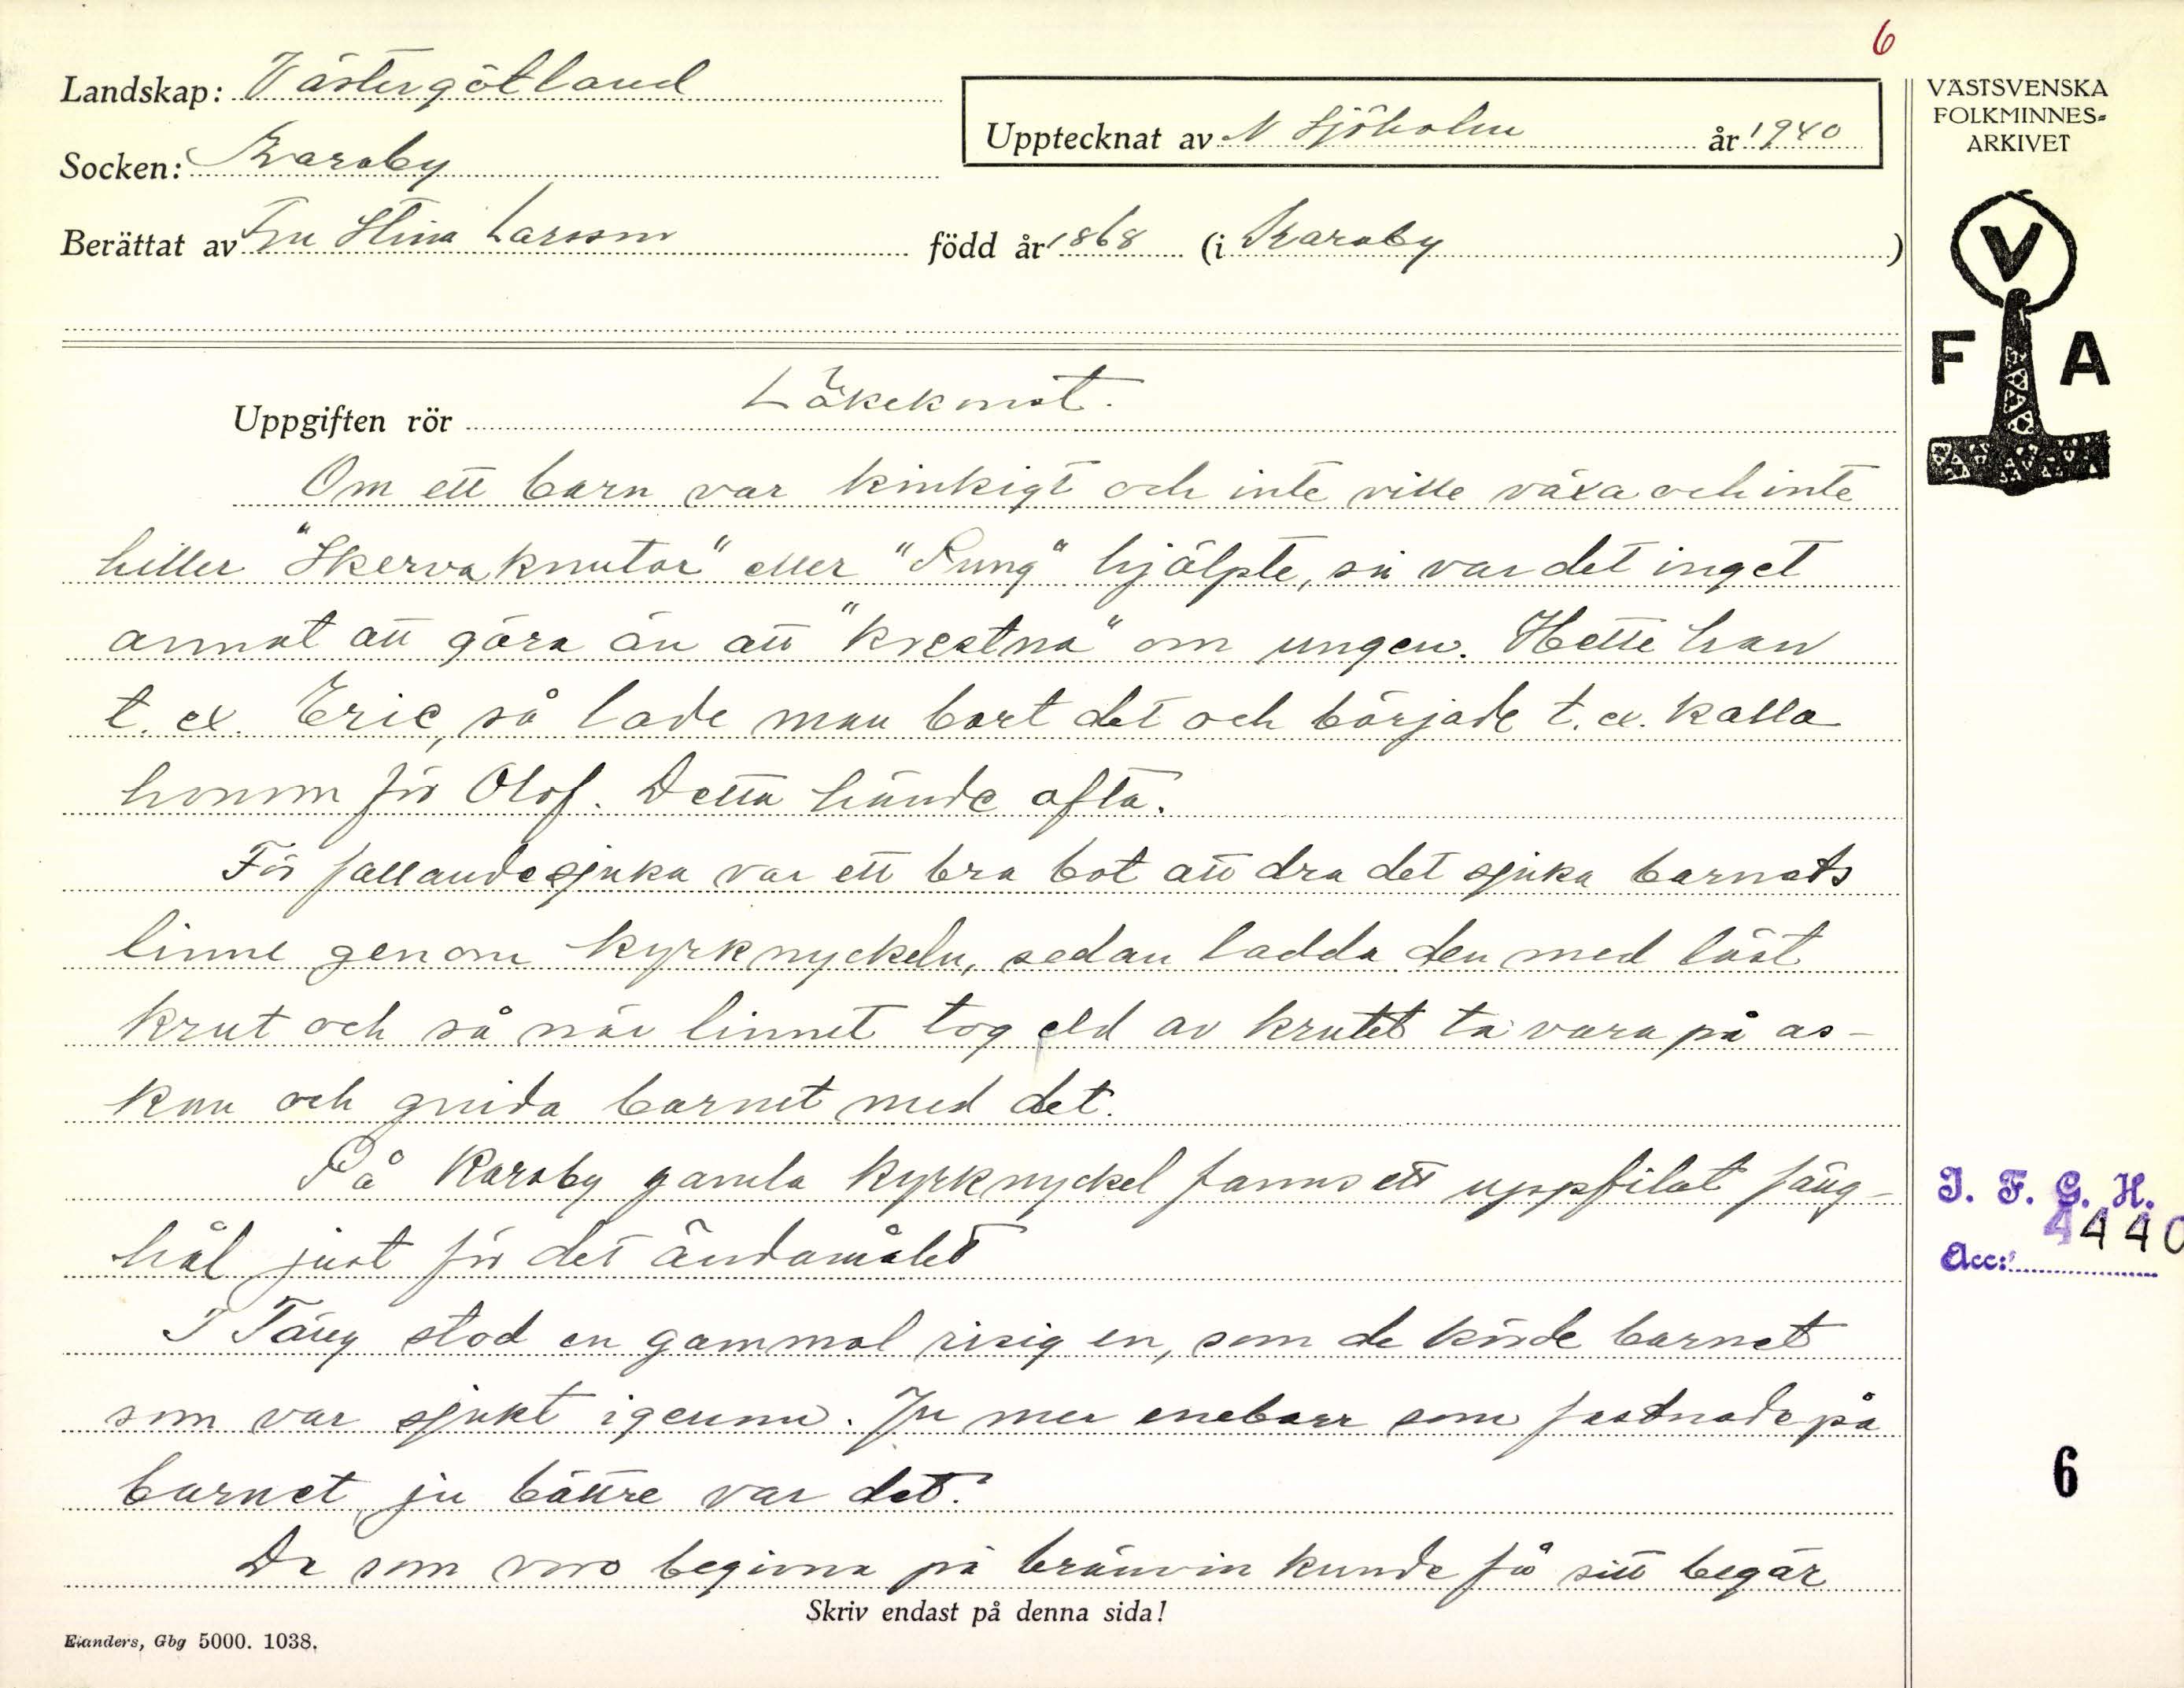 6
Landskap: Västergötland
Socken: Karaby
Upptecknat av N Sjöholm år 1940
Berättat av Fru Stina Larsson född år 1868 (i Karaby)
VÄSTSVENSKA
FOLKMINNES=
ARKIVET
V
F A
Uppgiften rör Läkekonst.
Om ett barn var kinkigt och inte ville växa och inte
heller "Skervaknutar" eller "Pung" hjälpte, så var det inget
annat att göra än att "krestna" om ungen. Hette han
t. ex. Eric, så lade man bort det och började t. ex. kalla
honom för Olof. Detta hände ofta.
För fallandesjuka var ett bra bot att dra det sjuka barnets
linne genom kyrknyckeln, sedan ladda den med löst
krut och så när linnet tog eld av krutet ta vara på as-
kan och gnida barnet med det.
På Karaby gamla kyrknyckel fanns ett uppfilat fäng-
hål just för det ändamålet
I Täng stod en gammal risig en, som de körde barnet
som var sjukt igenom. Ju mer enebarr som fastnade på
barnet, ju bättre var det.
De som voro begivna på brännvin kunde få sitt begär
Skriv endast på denna sida!
Elanders, Gbg 5000. 1038.
I. F. G. H.
Acc: 4440
6